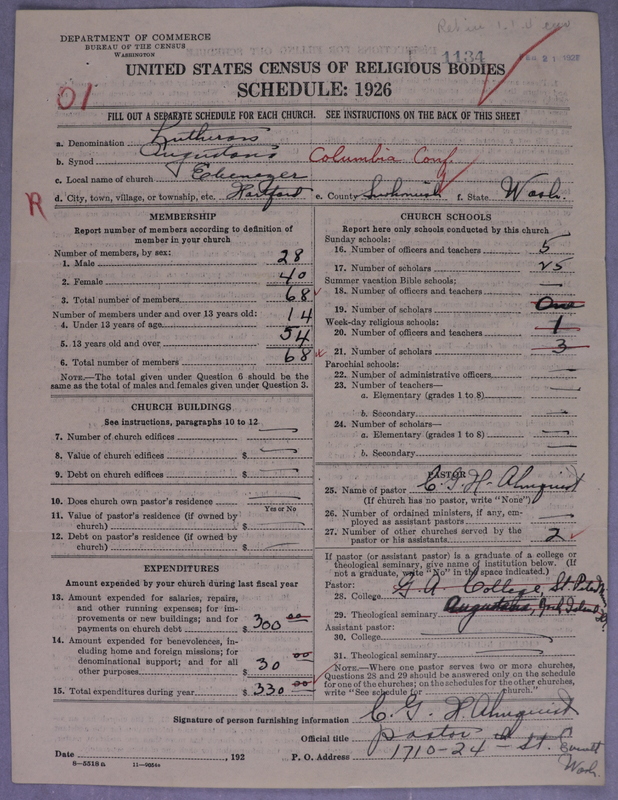 DEPARTMENT OF COMMERCE
BUREAU OF THE CENSUS
WASHINGTON
1134
UNITED STATES CENSUS OF RELIGIOUS BODIES
SCHEDULE: 1926
01
FILL OUT A SEPARATE SCHEDULE FOR EACH CHURCH. SEE INSTRUCTIONS ON THE BACK OF THIS SHEET
a. Denomination Lutheran
b. Synod Augustana Columbia Conf.
c. Local name of church Ebenezer
d. City, town, village, or township, etc. Hartford e. County Snohomish f. State Wash.
R
MEMBERSHIP
Report number of members according to definition of member in your church
Number of members, by sex:
1. Male 28
2. Female 40
3. Total number of members 68
Number of members under and over 13 years old:
4. Under 13 years of age 14
5. 13 years old and over 54
6. Total number of members 68
NOTE.—The total given under Question 6 should be
same as the total of males and females given under Question 3.
CHURCH BUILDINGS
See instructions, paragraphs 10 to 12
7. Number of church edifices
8. Value of church edifices $
9. Debt on church edifices $
10. Does church own pastor's residence
Yes or No
11. Value of pastor's residence (if owned by
church) $
12. Debt on pastor's residence (if owned by
church) $
EXPENDITURES
Amount expended by your church during last fiscal year
13. Amount expended for salaries, repairs,
and other running expenses; for im-
provements or new buildings; and for
payments on church debt $ 300 00
14. Amount expended for benevolences, in-
cluding home and foreign missions; for
denominational support; and for all
other purposes $ 30 00
15. Total expenditures during year $ 330 00
CHURCH SCHOOLS
Report here only schools conducted by this church
Sunday schools:
16. Number of officers and teachers 5
17. Number of scholars 25
Summer vacation Bible schools:
18. Number of officers and teachers
19. Number of scholars One
Week-day religious schools:
20. Number of officers and teachers 1
21. Number of scholars 3
Parochial schools:
22. Number of administrative officers
23. Number of teachers—
a. Elementary (grades 1 to 8)
b. Secondary
24. Number of scholars—
a. Elementary (grades 1 to 8)
b. Secondary
PASTOR
25. Name of pastor C. G. H. Almquist
(If church has no pastor, write "None")
26. Number of ordained ministers, if any, em-
ployed as assistant pastors
27. Number of other churches served by the
pastor or his assistants 2
If pastor (or assistant pastor) is a graduate of a college or
theological seminary, give name of institution below. (If
not a graduate, write "No" in the space indicated.)
Pastor:
28. College G. A. College, St. Peter
29. Theological seminary Augustana, Rock Island
Assistant pastor:
30. College
31. Theological seminary
NOTE.—Where one pastor serves two or more churches,
Questions 28 and 29 should be answered only on the schedule
for one of the churches; on the schedules for the other churches,
write "See schedule for church."
Signature of person furnishing information C. G. H. Almquist
Official title pastor
Date , 192 P. O. Address 1710-24 — St. Everett
Wash.
8—5518 a 11—9054